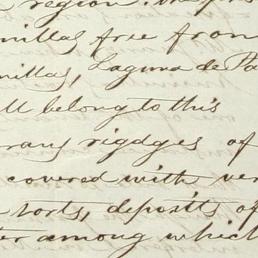 region.
free from
Laguna de Pa
ll belong to this
ridges of
covered with ver
sorts, deposits of
ter among which